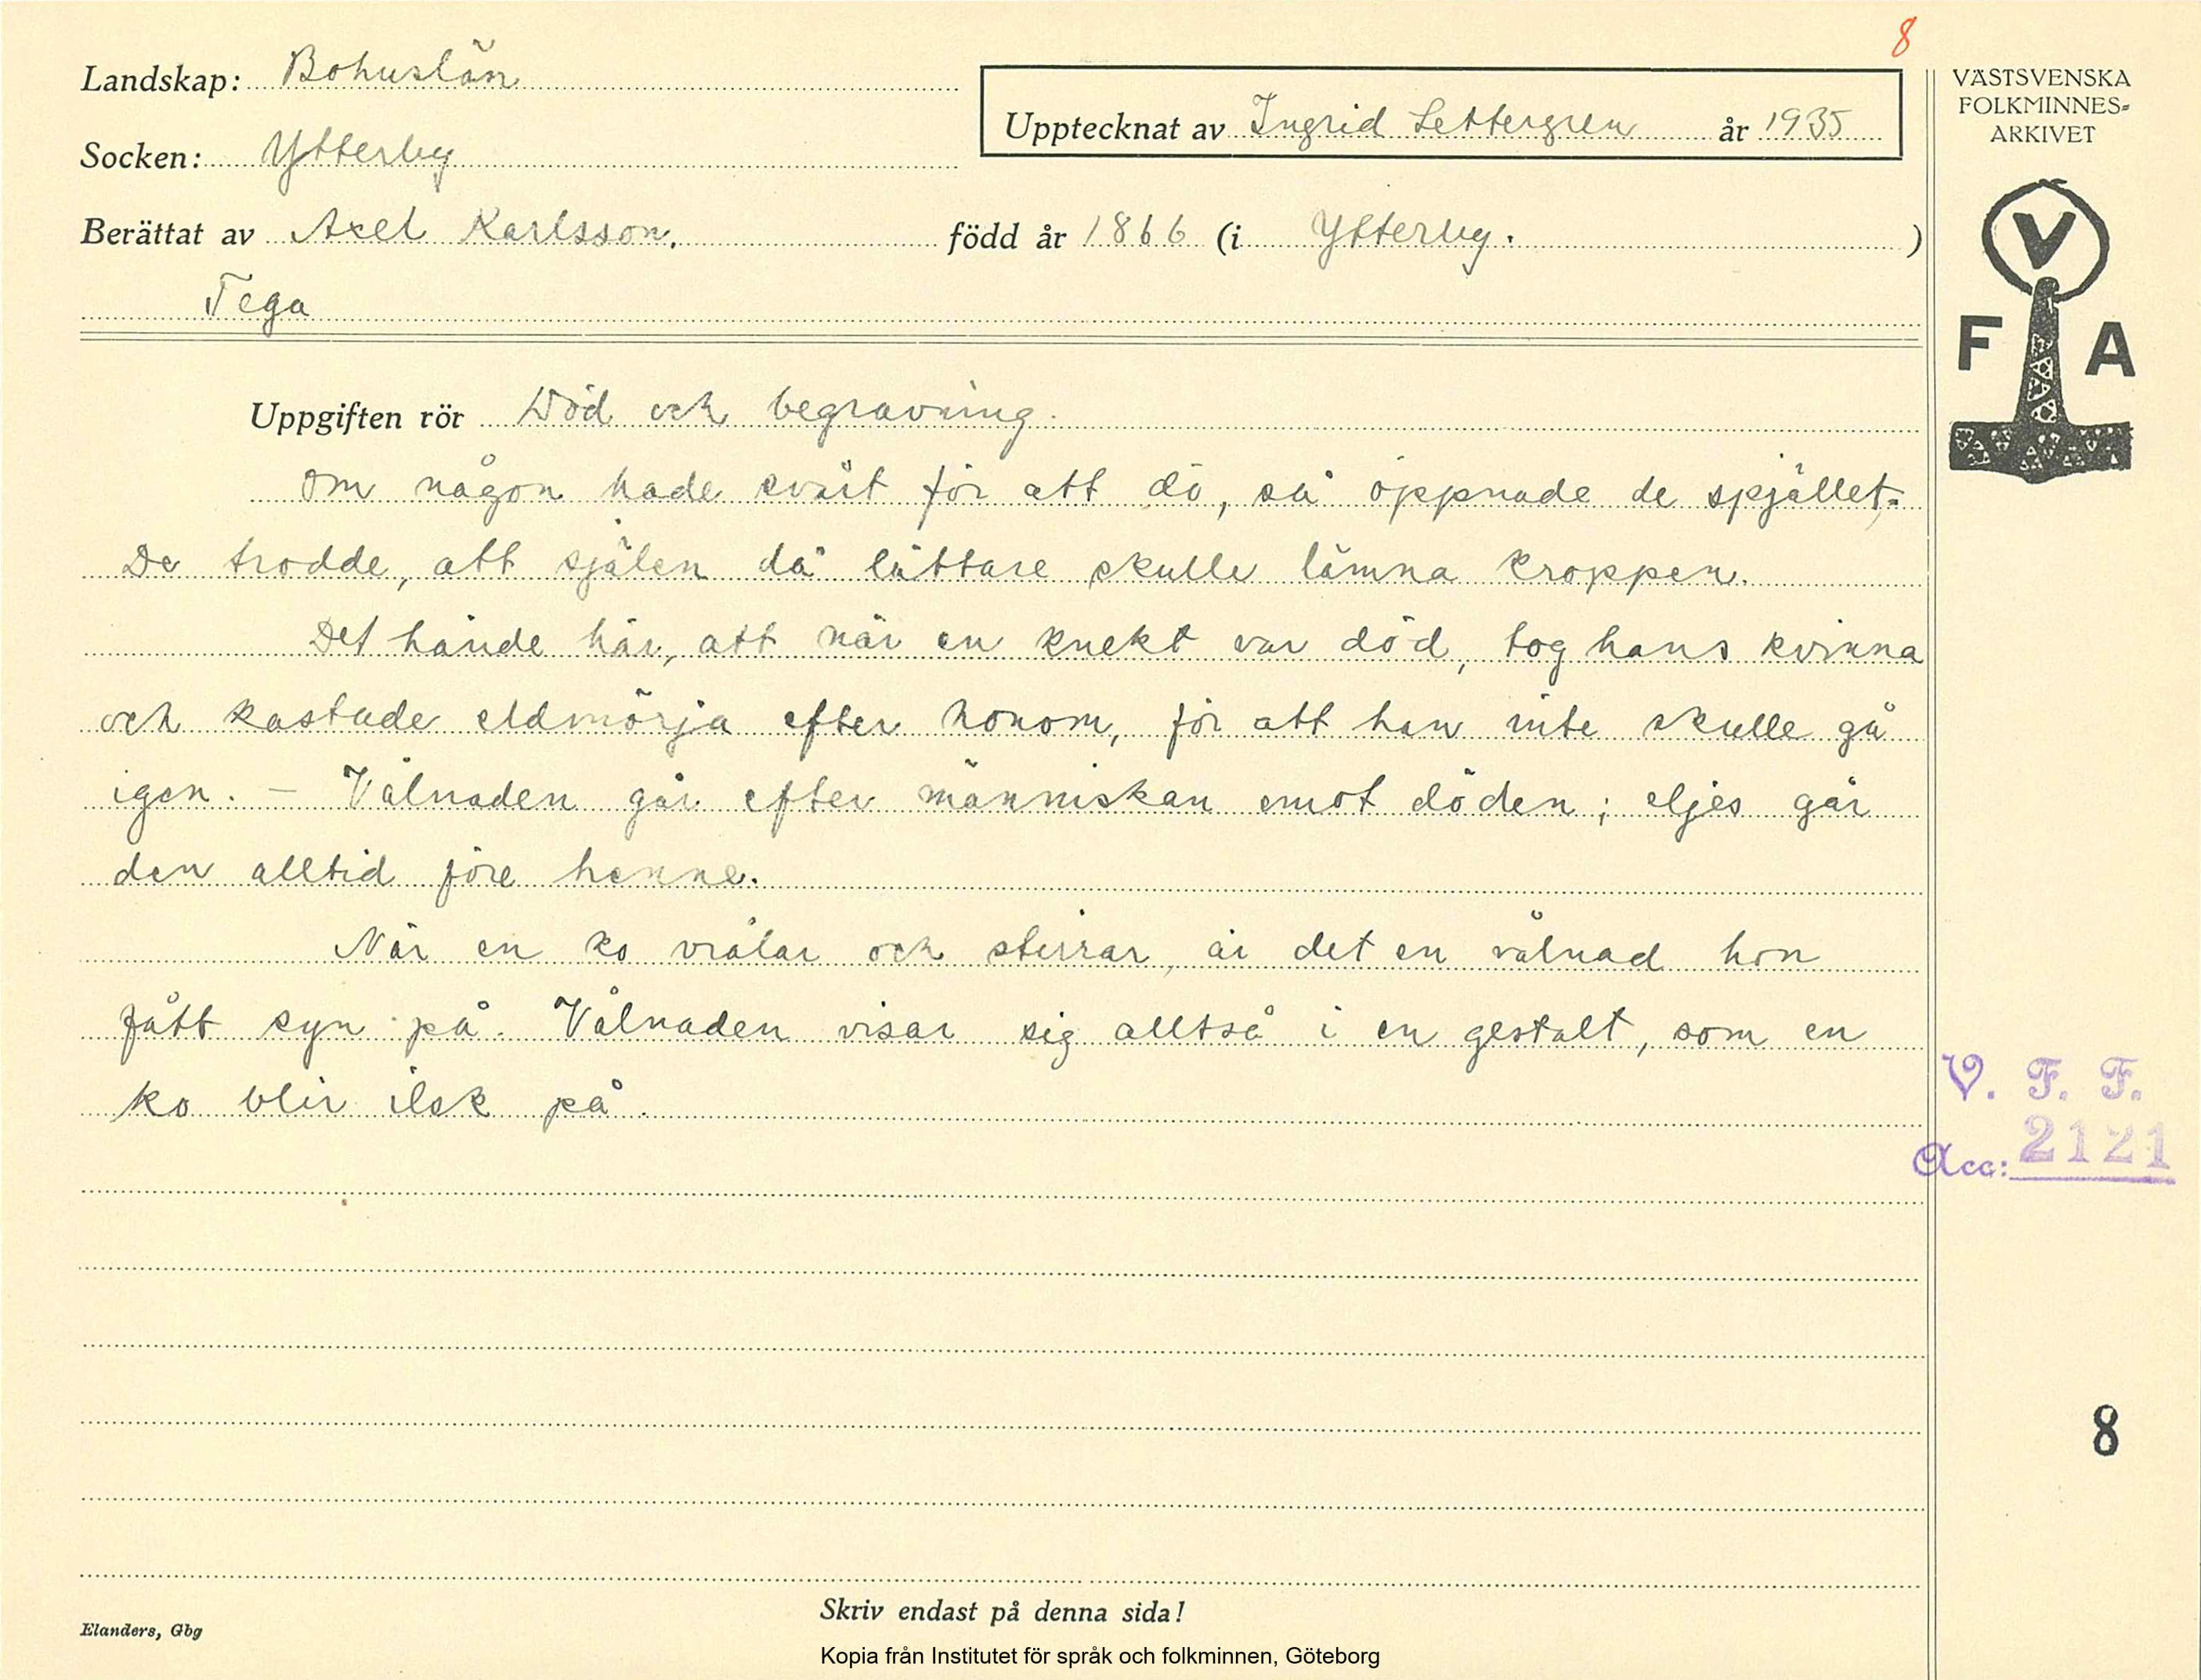 8
Landskap: Bohuslän
Upptecknat av Ingrid Settergren år 1935
Socken: Ytterby
Berättat av Axel Karlsson. född år 1866 (i Ytterby. )
Tega
VÄSTSVENSKA
FOLKMINNES-
ARKIVET
V
F A
Uppgiften rör Död och begravning.
Om någon hade svårt för att dö, så öppnade de spjället.
De trodde, att själen då lättare skulle lämna kroppen.
Det hände här, att när en knekt var död, tog hans kvinna
och kastade eldmörja efter honom, för att han inte skulle gå
igen. – Vålnaden går efter människan emot döden; eljes går
den alltid före henne.
När en ko vrålar och stirrar, är det en vålnad hon
fått syn på. Vålnaden visar sig alltså i en gestalt, som en
ko blir ilsk på.
V. F. F.
Acc: 2121
8
Skriv endast på denna sida!
Elanders, Gbg
Kopia från Institutet för språk och folkminnen, Göteborg